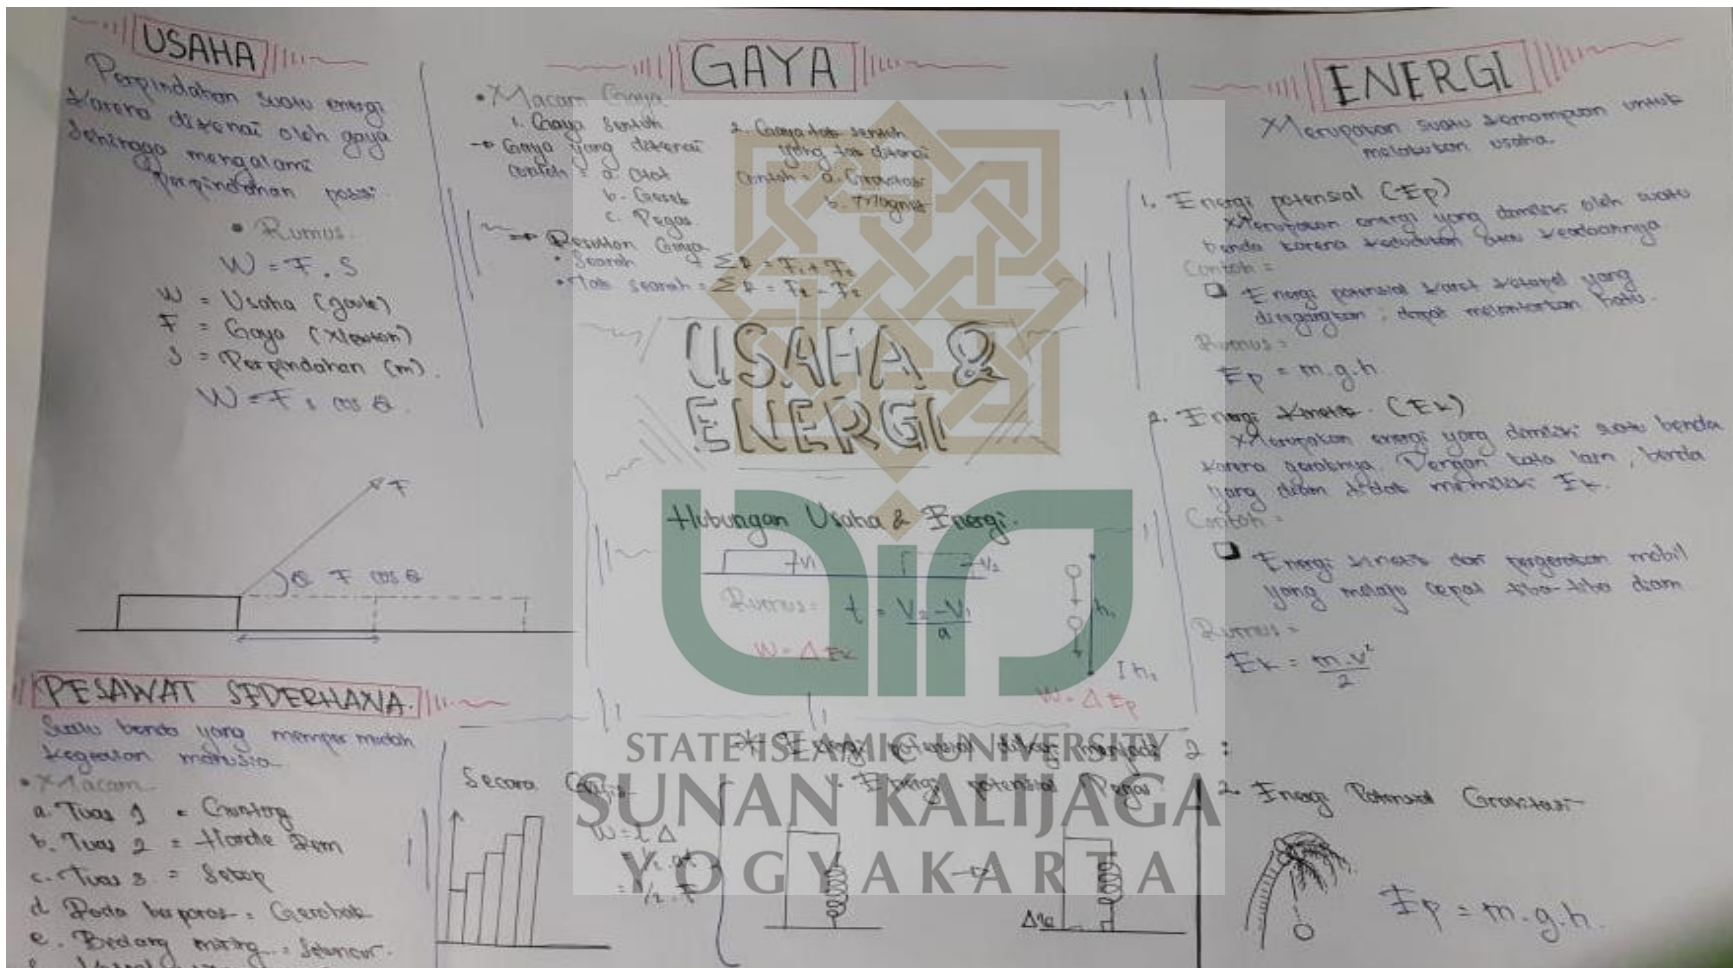 USAHA
Perpindahan suatu energi
karena dikenai oleh gaya
sehingga mengalami
perpindahan posisi.
• Rumus.
W = F . S
W = Usaha (joule)
F = Gaya (Newton)
S = Perpindahan (m).
W = F s cos θ.
F
θ F cos θ
PESAWAT SEDERHANA.
Suatu benda yang mempermudah
kegiatan manusia
• Macam
a. Tuas 1 = Gunting
b. Tuas 2 = Handle Rem
c. Tuas 3 = Sekop
d Roda berporos = Gerobak
e. Bidang miring = Seluncur.
GAYA
• Macam Gaya
1. Gaya sentuh
→ Gaya yang dikenai
contoh = a. Otot
b. Gesek
c. Pegas
2. Gaya tak sentuh
yang tak dikenai
contoh = a. Gravitasi
b. Magnet
→ Resultan Gaya
• Searah ΣF = F₁ + F₂
• Tak searah = ΣF = F₂ - F₂
USAHA &
ENERGI
Hubungan Usaha & Energi.
V₁ V₂
Rumus = t = V₂ - V₁
a
W = Δ Ek
h₁
h₂
W = Δ Ep
Secara
W =
= 1/2 . F
* Energi potensial dibagi menjadi 2 :
1. Energi potensial Pegas
2. Energi Potensial Gravitasi
Ep = m.g.h.
ENERGI
Merupakan suatu kemampuan untuk
melakukan usaha.
1. Energi potensial (Ep)
Merupakan energi yang dimiliki oleh suatu
benda karena kedudukan atau keadaannya
Contoh =
Energi potensial karet ketapel yang
diregangkan ; dapat melontarkan batu.
Rumus =
Ep = m.g.h
2. Energi Kinetik. (Ek)
Merupakan energi yang dimiliki suatu benda
karena geraknya. Dengan kata lain, benda
yang diam tidak memiliki Ek.
Contoh =
Energi kinetik dari pergerakan mobil
yang melaju cepat tiba-tiba diam
Rumus =
Ek = m.v²
2
STATE ISLAMIC UNIVERSITY
SUNAN KALIJAGA
YOGYAKARTA